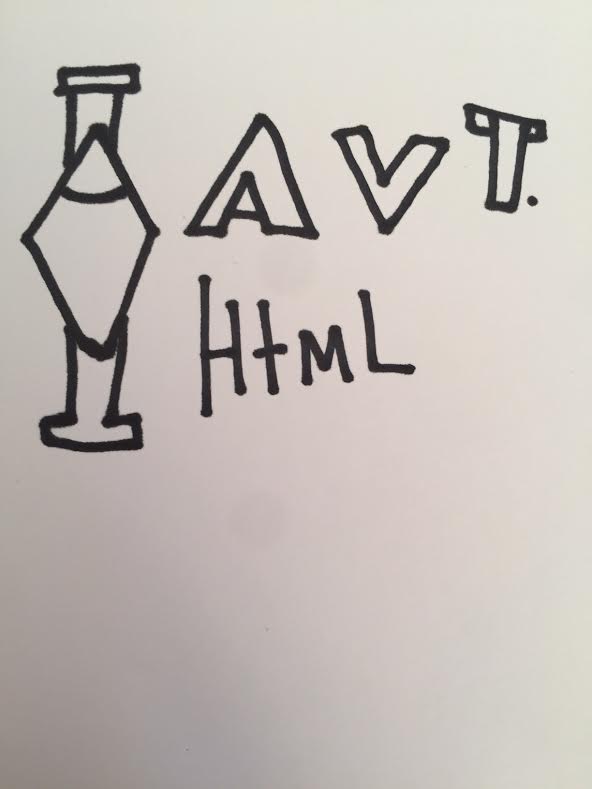 AVT.
HtmL